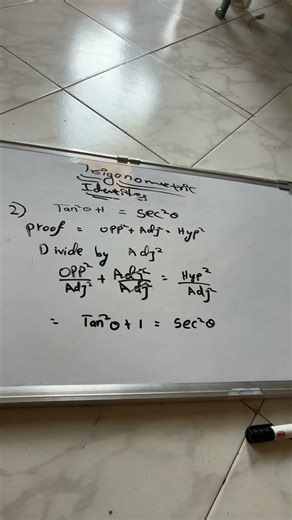 Trigonometric
Identities
2) Tan²θ+1 = sec²θ
proof = OPP²+Adj² = Hyp²
Divide by Adj²
OPP²/Adj² + Adj²/Adj² = Hyp²/Adj²
= Tan²θ+1 = sec²θ